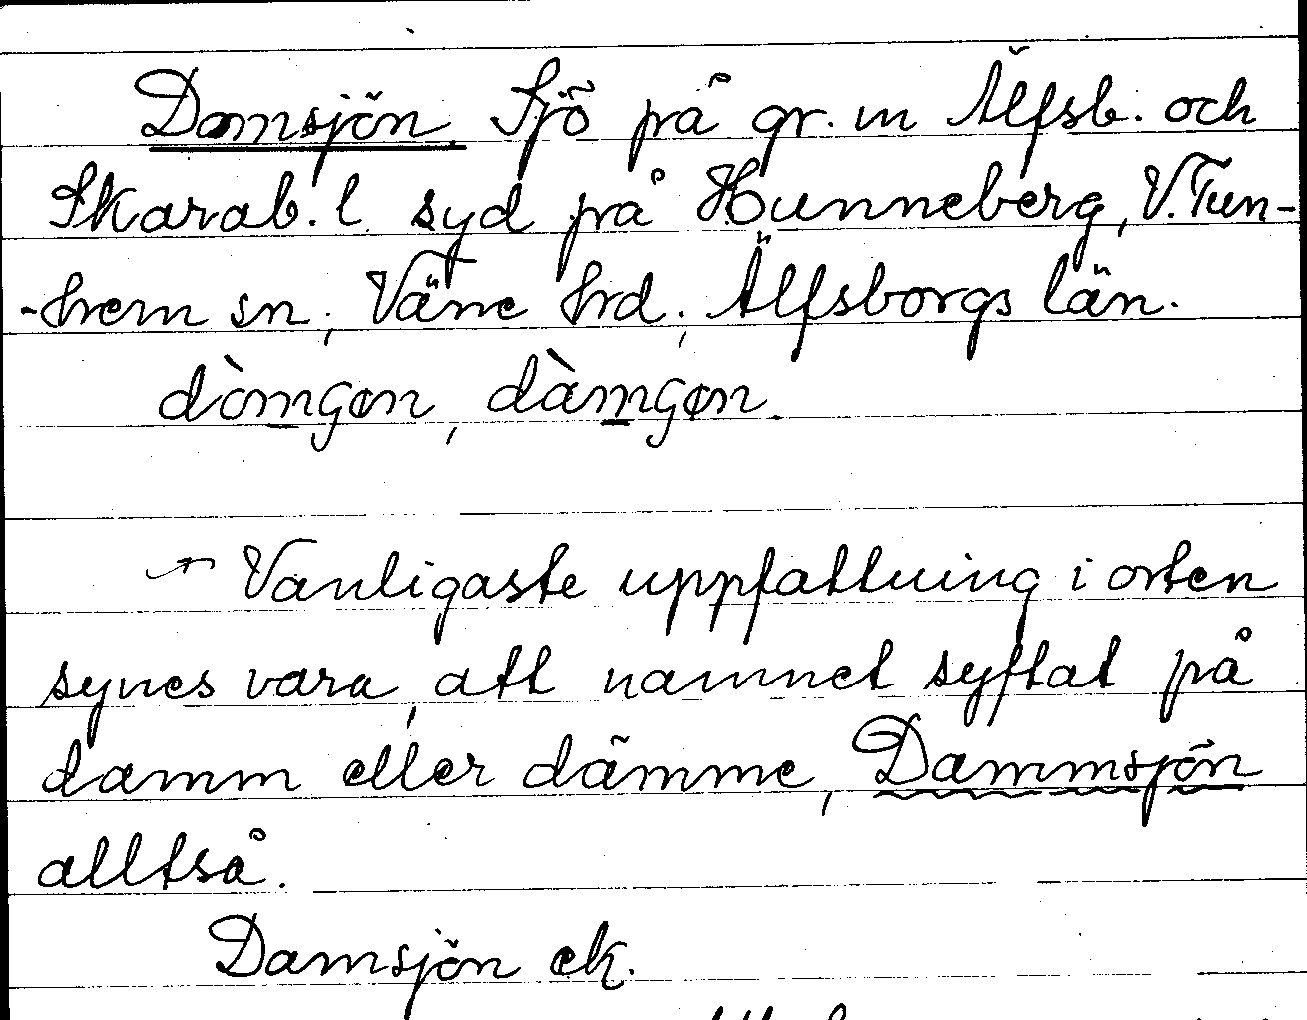 Damsjön Sjö på gr. m Älfsb. och
Skarab. l. syd på Hunneberg, V. Tun-
-hem sn, Väne hrd, Älfsborgs län.
Vanligaste uppfattning i orten
synes vara, att namnet syftat på
damm eller dämme, Dammsjön
alltså.
Damsjön ek.